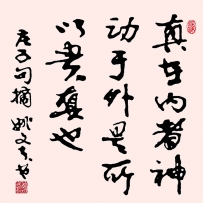 真在内者神
动于外是所
以贵真也
庄子句摘 姚文